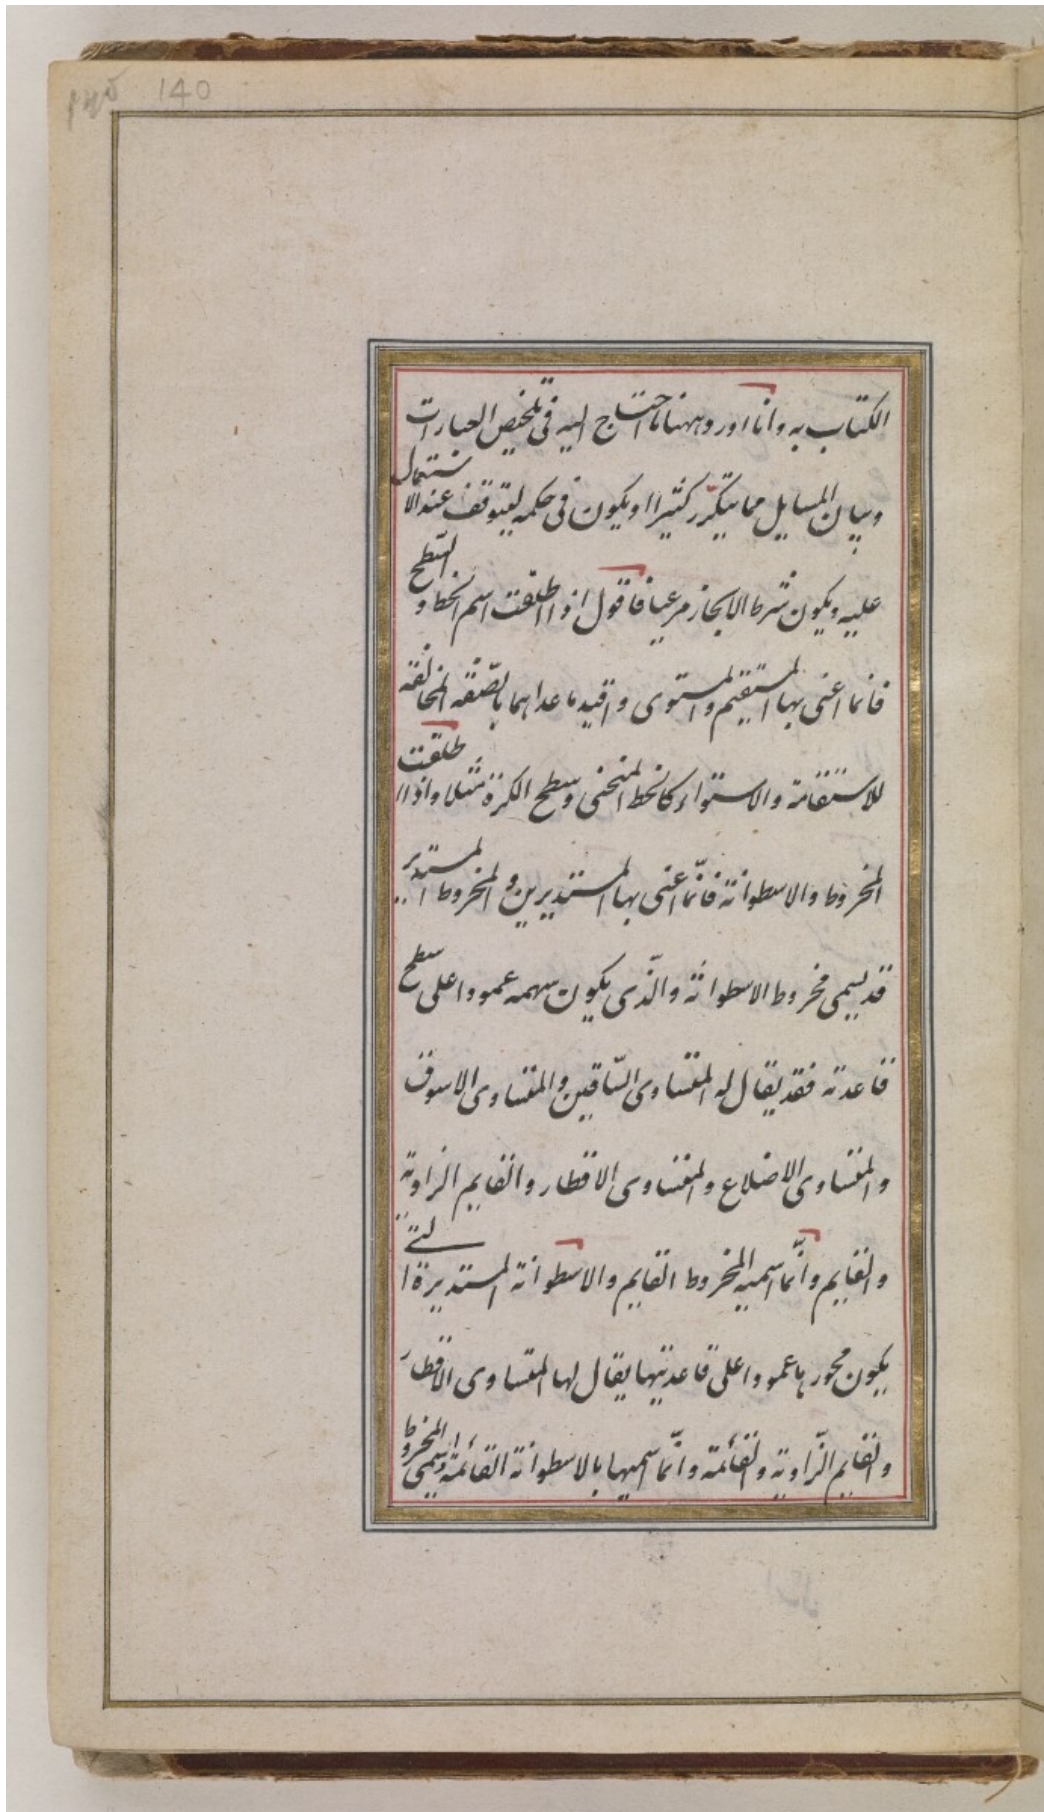 140
الكتاب به وانا اورد ههنا ما احتاج اليه فى تلخيص العبارات
وبيان المسايل مما يتكرّر كثيرا او يكون فى حكمه ليتوقف عند الاستعمال
عليه ويكون شرط الايجاز مرعيا فاقول اذا اطلقت اسم الخط والسّطح
فانما اعنى بها المستقيم والمستوى واقيد ما عداهما بالصّفة المخالفة
للاستقامة والاستواء كالخط المنحنى وسطح الكرة مثلا واذا اطلقت
المخروط والاسطوانة فانّما اعنى بها المستديرين والمخروط المستدير
قد يسمى مخروط الاسطوانة والّذى يكون سهمه عمودا على سطح
قاعدته فقد يقال له المتساوى السّاقين والمتساوى الاسوق
والمتساوى الاضلاع والمتساوى الاقطار والقايم الزاوية
والقايم وانّما اسميه المخروط القايم والاسطوانة المستديرة التى
يكون محورها عمودا على قاعدتيها يقال لها المتساوى الاقطار
والقايم الزّاوية والقائمة وانّما اسميها بالاسطوانة القائمة واسمى المخروط